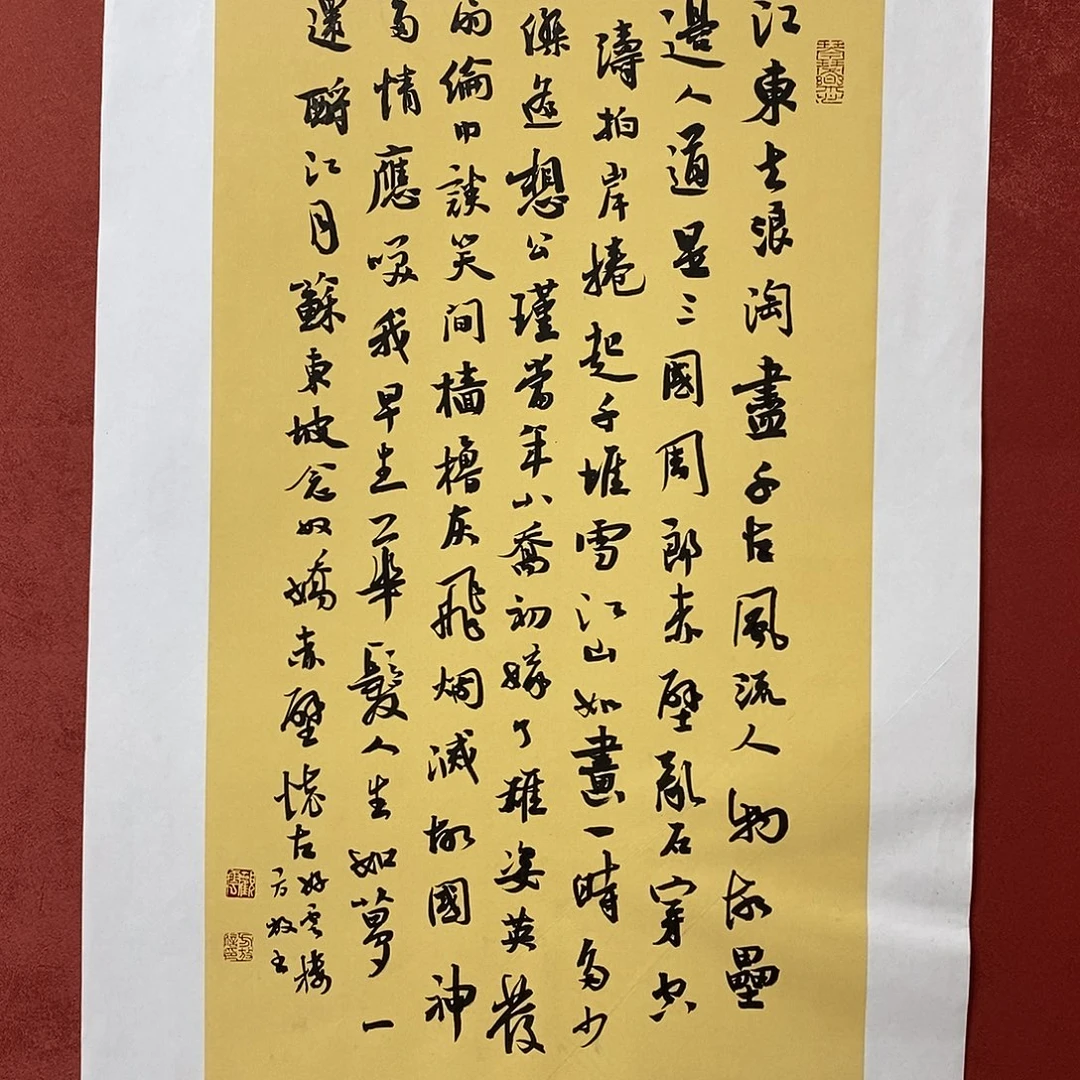 江東去浪淘盡千古風流人物故壘
邊人道是三國周郎赤壁亂石穿空
濤拍岸捲起千堆雪江山如畫一時多少
傑遙想公瑾當年小喬初嫁了雄姿英發
扇綸巾談笑间檣櫓灰飛烟滅故國神
多情應笑我早生華髮人生如夢一
還酹江月蘇東坡念奴嬌赤壁懷古好雲樓